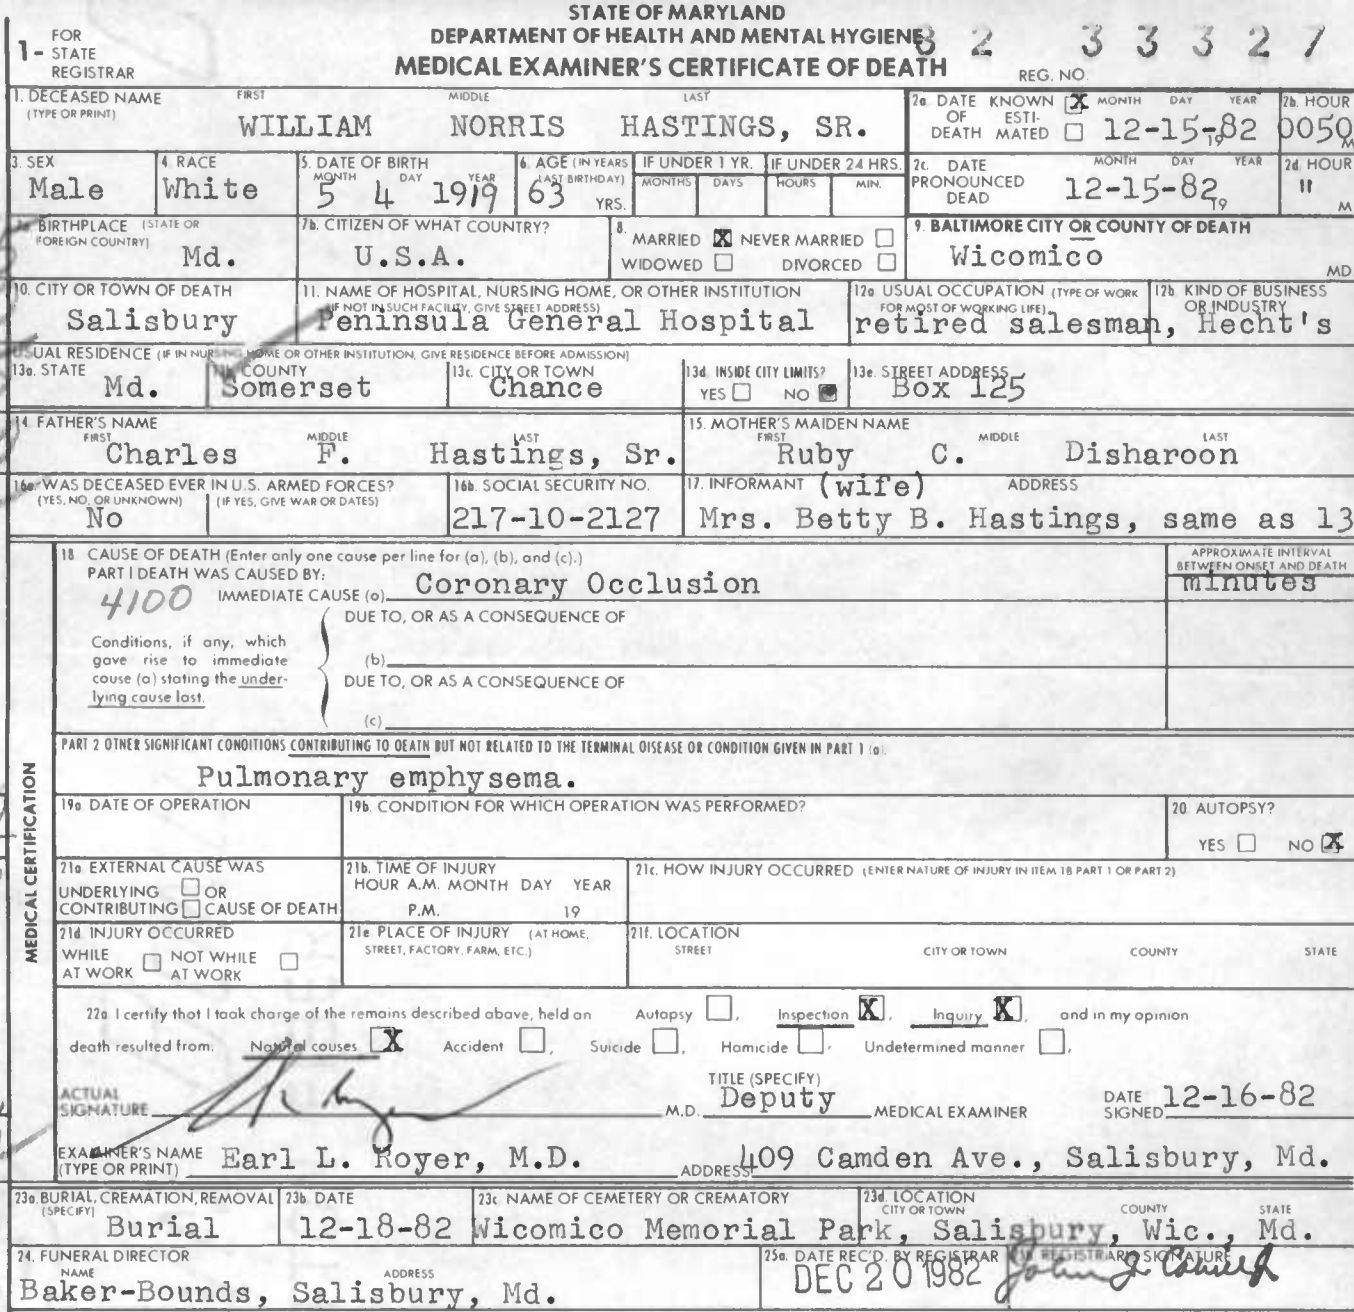 STATE OF MARYLAND
DEPARTMENT OF HEALTH AND MENTAL HYGIENE
MEDICAL EXAMINER'S CERTIFICATE OF DEATH
1- FOR STATE REGISTRAR
82 33327
REG. NO.
1. DECEASED NAME (TYPE OR PRINT) FIRST MIDDLE LAST
WILLIAM NORRIS HASTINGS, SR.
2a. DATE OF DEATH KNOWN X ESTIMATED MONTH DAY YEAR 12-15-82 19
2b. HOUR 0050 M
3. SEX Male
4. RACE White
5. DATE OF BIRTH MONTH DAY YEAR 5 4 1919
6. AGE (IN YEARS LAST BIRTHDAY) 63 YRS.
IF UNDER 1 YR. MONTHS DAYS
IF UNDER 24 HRS. HOURS MIN.
2c. DATE PRONOUNCED DEAD MONTH DAY YEAR 12-15-82 19
2d. HOUR " M
7a. BIRTHPLACE (STATE OR FOREIGN COUNTRY) Md.
7b. CITIZEN OF WHAT COUNTRY? U.S.A.
8. MARRIED X NEVER MARRIED WIDOWED DIVORCED
9. BALTIMORE CITY OR COUNTY OF DEATH Wicomico MD
10. CITY OR TOWN OF DEATH Salisbury
11. NAME OF HOSPITAL, NURSING HOME, OR OTHER INSTITUTION (IF NOT IN SUCH FACILITY, GIVE STREET ADDRESS) Peninsula General Hospital
12a. USUAL OCCUPATION (TYPE OF WORK FOR MOST OF WORKING LIFE) retired salesman,
12b. KIND OF BUSINESS OR INDUSTRY Hecht's
USUAL RESIDENCE (IF IN NURSING HOME OR OTHER INSTITUTION, GIVE RESIDENCE BEFORE ADMISSION)
13a. STATE Md.
13b. COUNTY Somerset
13c. CITY OR TOWN Chance
13d. INSIDE CITY LIMITS? YES NO
13e. STREET ADDRESS Box 125
14. FATHER'S NAME FIRST MIDDLE LAST
Charles F. Hastings, Sr.
15. MOTHER'S MAIDEN NAME FIRST MIDDLE LAST
Ruby C. Disharoon
16a. WAS DECEASED EVER IN U.S. ARMED FORCES? (YES, NO, OR UNKNOWN) (IF YES, GIVE WAR OR DATES)
No
16b. SOCIAL SECURITY NO. 217-10-2127
17. INFORMANT (wife) ADDRESS
Mrs. Betty B. Hastings, same as 13
MEDICAL CERTIFICATION
18 CAUSE OF DEATH (Enter only one cause per line for (a), (b), and (c).)
APPROXIMATE INTERVAL BETWEEN ONSET AND DEATH
PART I DEATH WAS CAUSED BY:
4100 IMMEDIATE CAUSE (a) Coronary Occlusion minutes
DUE TO, OR AS A CONSEQUENCE OF
Conditions, if any, which gave rise to immediate cause (a) stating the underlying cause last.
(b)
DUE TO, OR AS A CONSEQUENCE OF
(c)
PART 2 OTHER SIGNIFICANT CONDITIONS CONTRIBUTING TO DEATH BUT NOT RELATED TO THE TERMINAL DISEASE OR CONDITION GIVEN IN PART 1 (a).
Pulmonary emphysema.
19a DATE OF OPERATION
19b. CONDITION FOR WHICH OPERATION WAS PERFORMED?
20. AUTOPSY? YES NO X
21a EXTERNAL CAUSE WAS UNDERLYING OR CONTRIBUTING CAUSE OF DEATH
21b. TIME OF INJURY HOUR A.M. MONTH DAY YEAR P.M. 19
21c. HOW INJURY OCCURRED (ENTER NATURE OF INJURY IN ITEM 18 PART 1 OR PART 2)
21d INJURY OCCURRED WHILE AT WORK NOT WHILE AT WORK
21e PLACE OF INJURY (AT HOME, STREET, FACTORY, FARM, ETC.)
21f. LOCATION STREET CITY OR TOWN COUNTY STATE
22a I certify that I took charge of the remains described above, held an Autopsy , Inspection X, Inquiry X, and in my opinion
death resulted from: Natural causes X Accident , Suicide , Homicide , Undetermined manner ,
ACTUAL SIGNATURE M.D.
TITLE (SPECIFY) Deputy MEDICAL EXAMINER
DATE SIGNED 12-16-82
EXAMINER'S NAME (TYPE OR PRINT) Earl L. Royer, M.D. ADDRESS 409 Camden Ave., Salisbury, Md.
23a. BURIAL, CREMATION, REMOVAL (SPECIFY) Burial
23b. DATE 12-18-82
23c. NAME OF CEMETERY OR CREMATORY Wicomico Memorial Park,
23d. LOCATION CITY OR TOWN COUNTY STATE Salisbury, Wic., Md.
24. FUNERAL DIRECTOR NAME ADDRESS
Baker-Bounds, Salisbury, Md.
25a. DATE REC'D. BY REGISTRAR DEC 20 1982
REGISTRAR'S SIGNATURE John J.